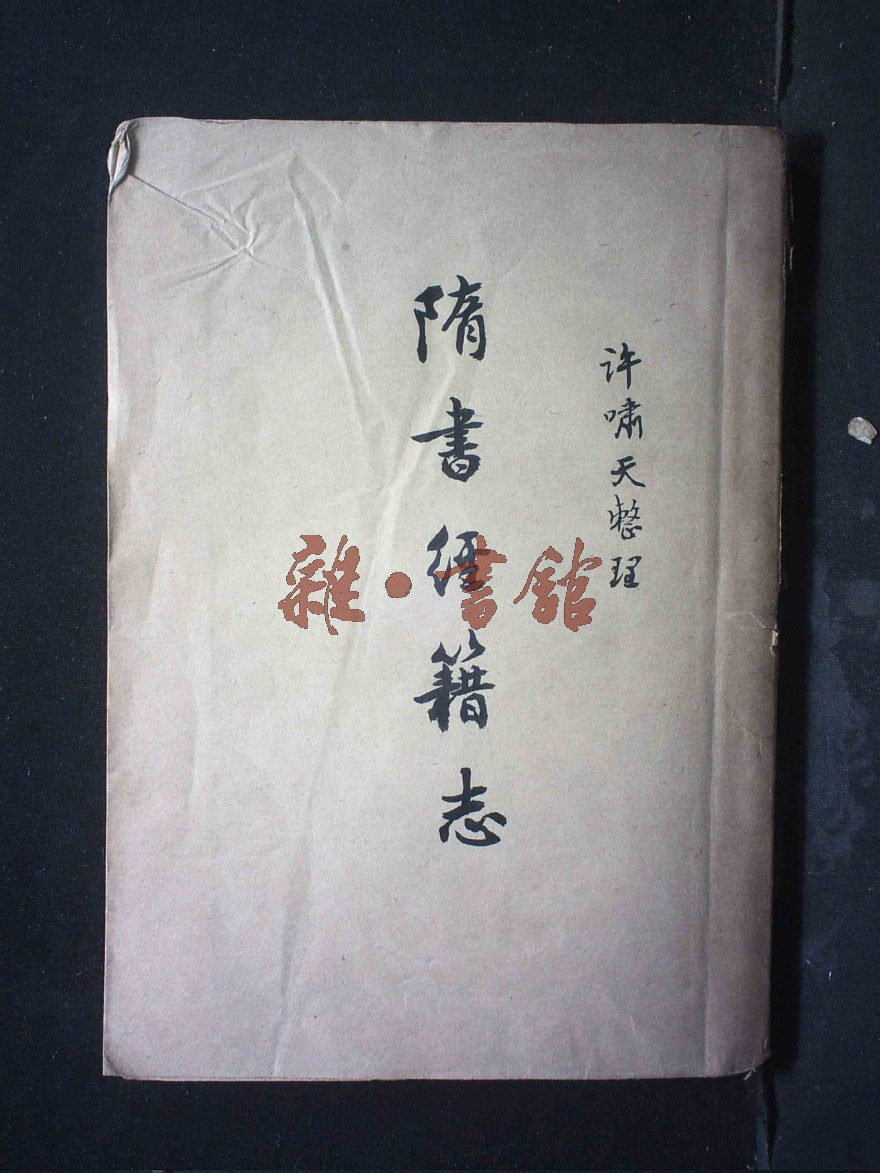 许啸天整理
隋书经籍志
雜·書館